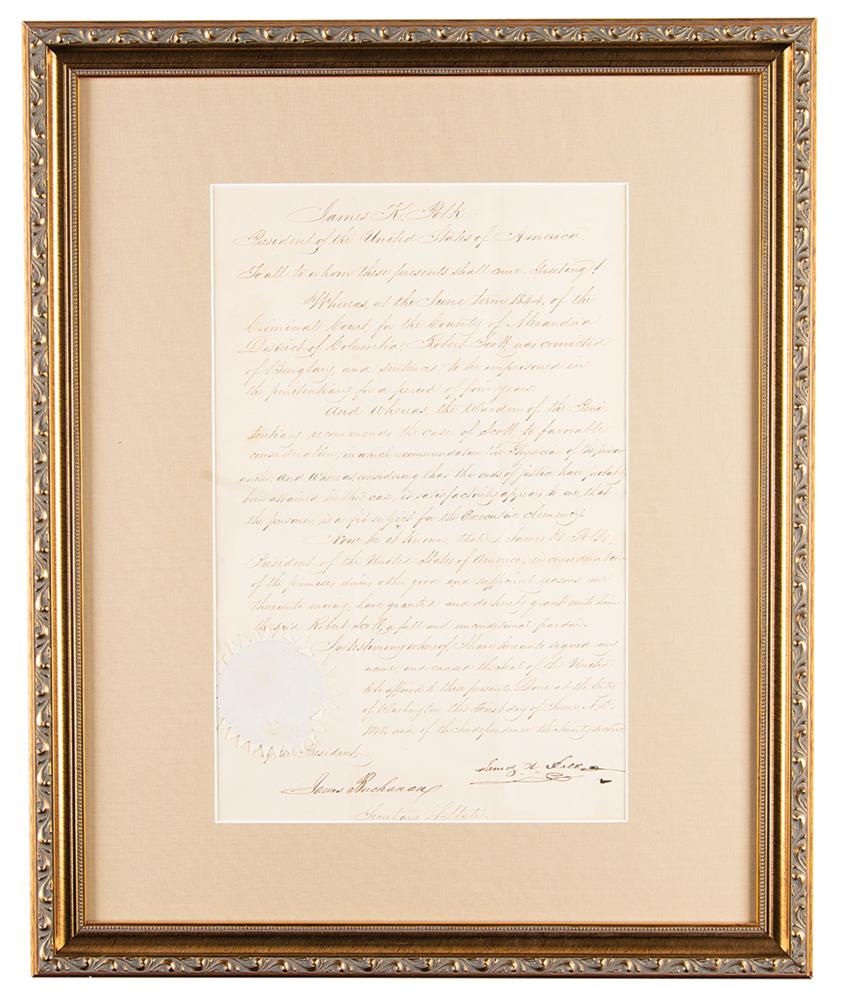 James K. Polk
President of the United States of America
To all to whom these presents shall come Greeting!
Whereas, at the June term 1844, of the
Criminal Court for the County of Alexandria
District of Columbia, Robert Scott was convicted
of Burglary and sentenced to be imprisoned in
the penitentiary for a period of four years.
And Whereas, the Warden of the Peni-
tentiary recommends the case of Scott to favorable
consideration, in which recommendation the Physician of the prison
unites: And Whereas, considering that the ends of justice have probably
been attained in this case, it satisfactorily appears to me, that
the prisoner is a fit subject for the Executive clemency.
Now be it known, that I, James K. Polk,
President of the United States of America, in consideration
of the premises divers other good and sufficient reasons me
thereunto moving, have granted and do hereby grant unto him
the said Robert Scott, a full and unconditional pardon.
In testimony whereof, I have hereunto signed my
name, and caused the Seal of the United
to be affixed to these presents. Done at the City
of Washington this First day of June, A.D.
1848, and of the Independence the Seventy second
By the President,
James K. Polk
James Buchanan
Secretary of State.